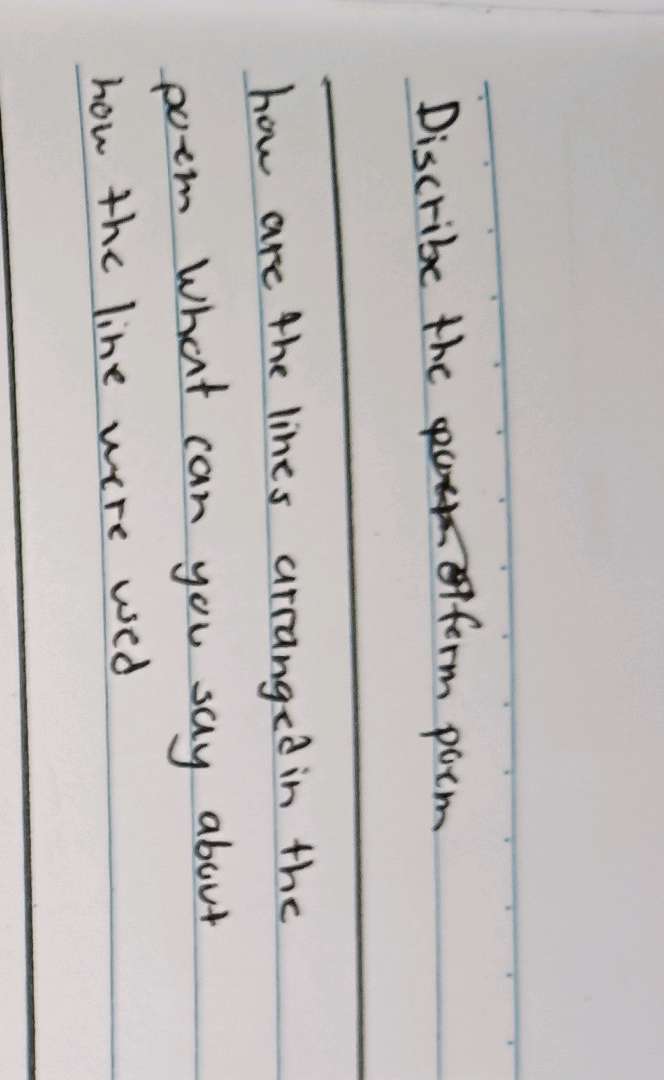 Discribe the poem of form poem
how are the lines arranged in the
poem What can you say about
how the line were used